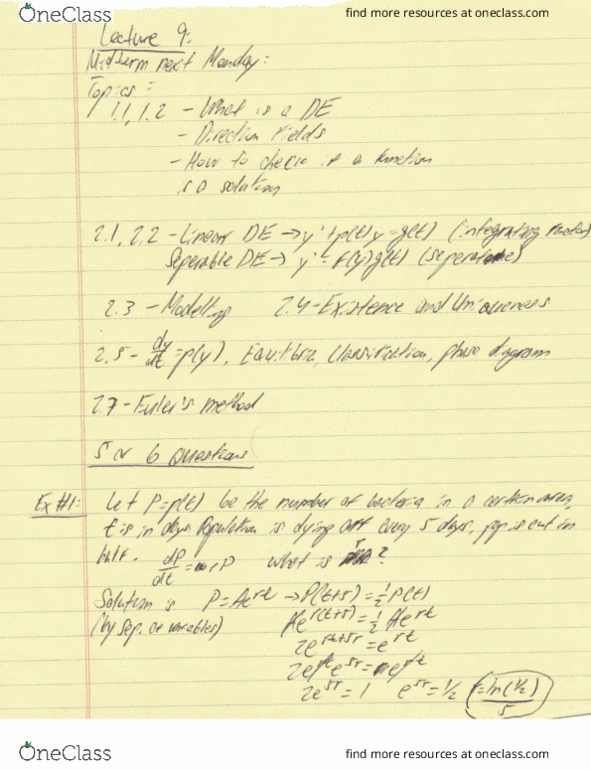 OneClass
find more resources at oneclass.com
Lecture 9:
Midterm next Monday:
Topics:
1.1, 1.2 - What is a DE
- Direction Fields
- How to check if a function
is a solution
2.1, 2.2 - Linear DE → y' + p(t)y = g(t) (integrating
Seperable DE → y' = f(y)g(t) (seperate)
2.3 - Modelling 2.4 - Existence and Uniqueness
2.5 - dy/dt = p(y), Equilibria, Classification, phase diagram
2.7 - Euler's method
5 or 6 Questions
Ex #1: Let P=p(t) be the number of bacteria in a certain area,
t is in days Population is dying off every 5 days, pop is cut in
half. dP/dt = rP what is ?
Solution is P=Ae^rt → P(t+5)=1/2 P(t)
(by sep. of variables) Ae^r(t+5) = 1/2 Ae^rt
2e^rt+5r = e^rt
2e^rt e^5r = e^rt
2e^5r = 1 e^5r = 1/2 r = ln(1/2)/5
OneClass
find more resources at oneclass.com